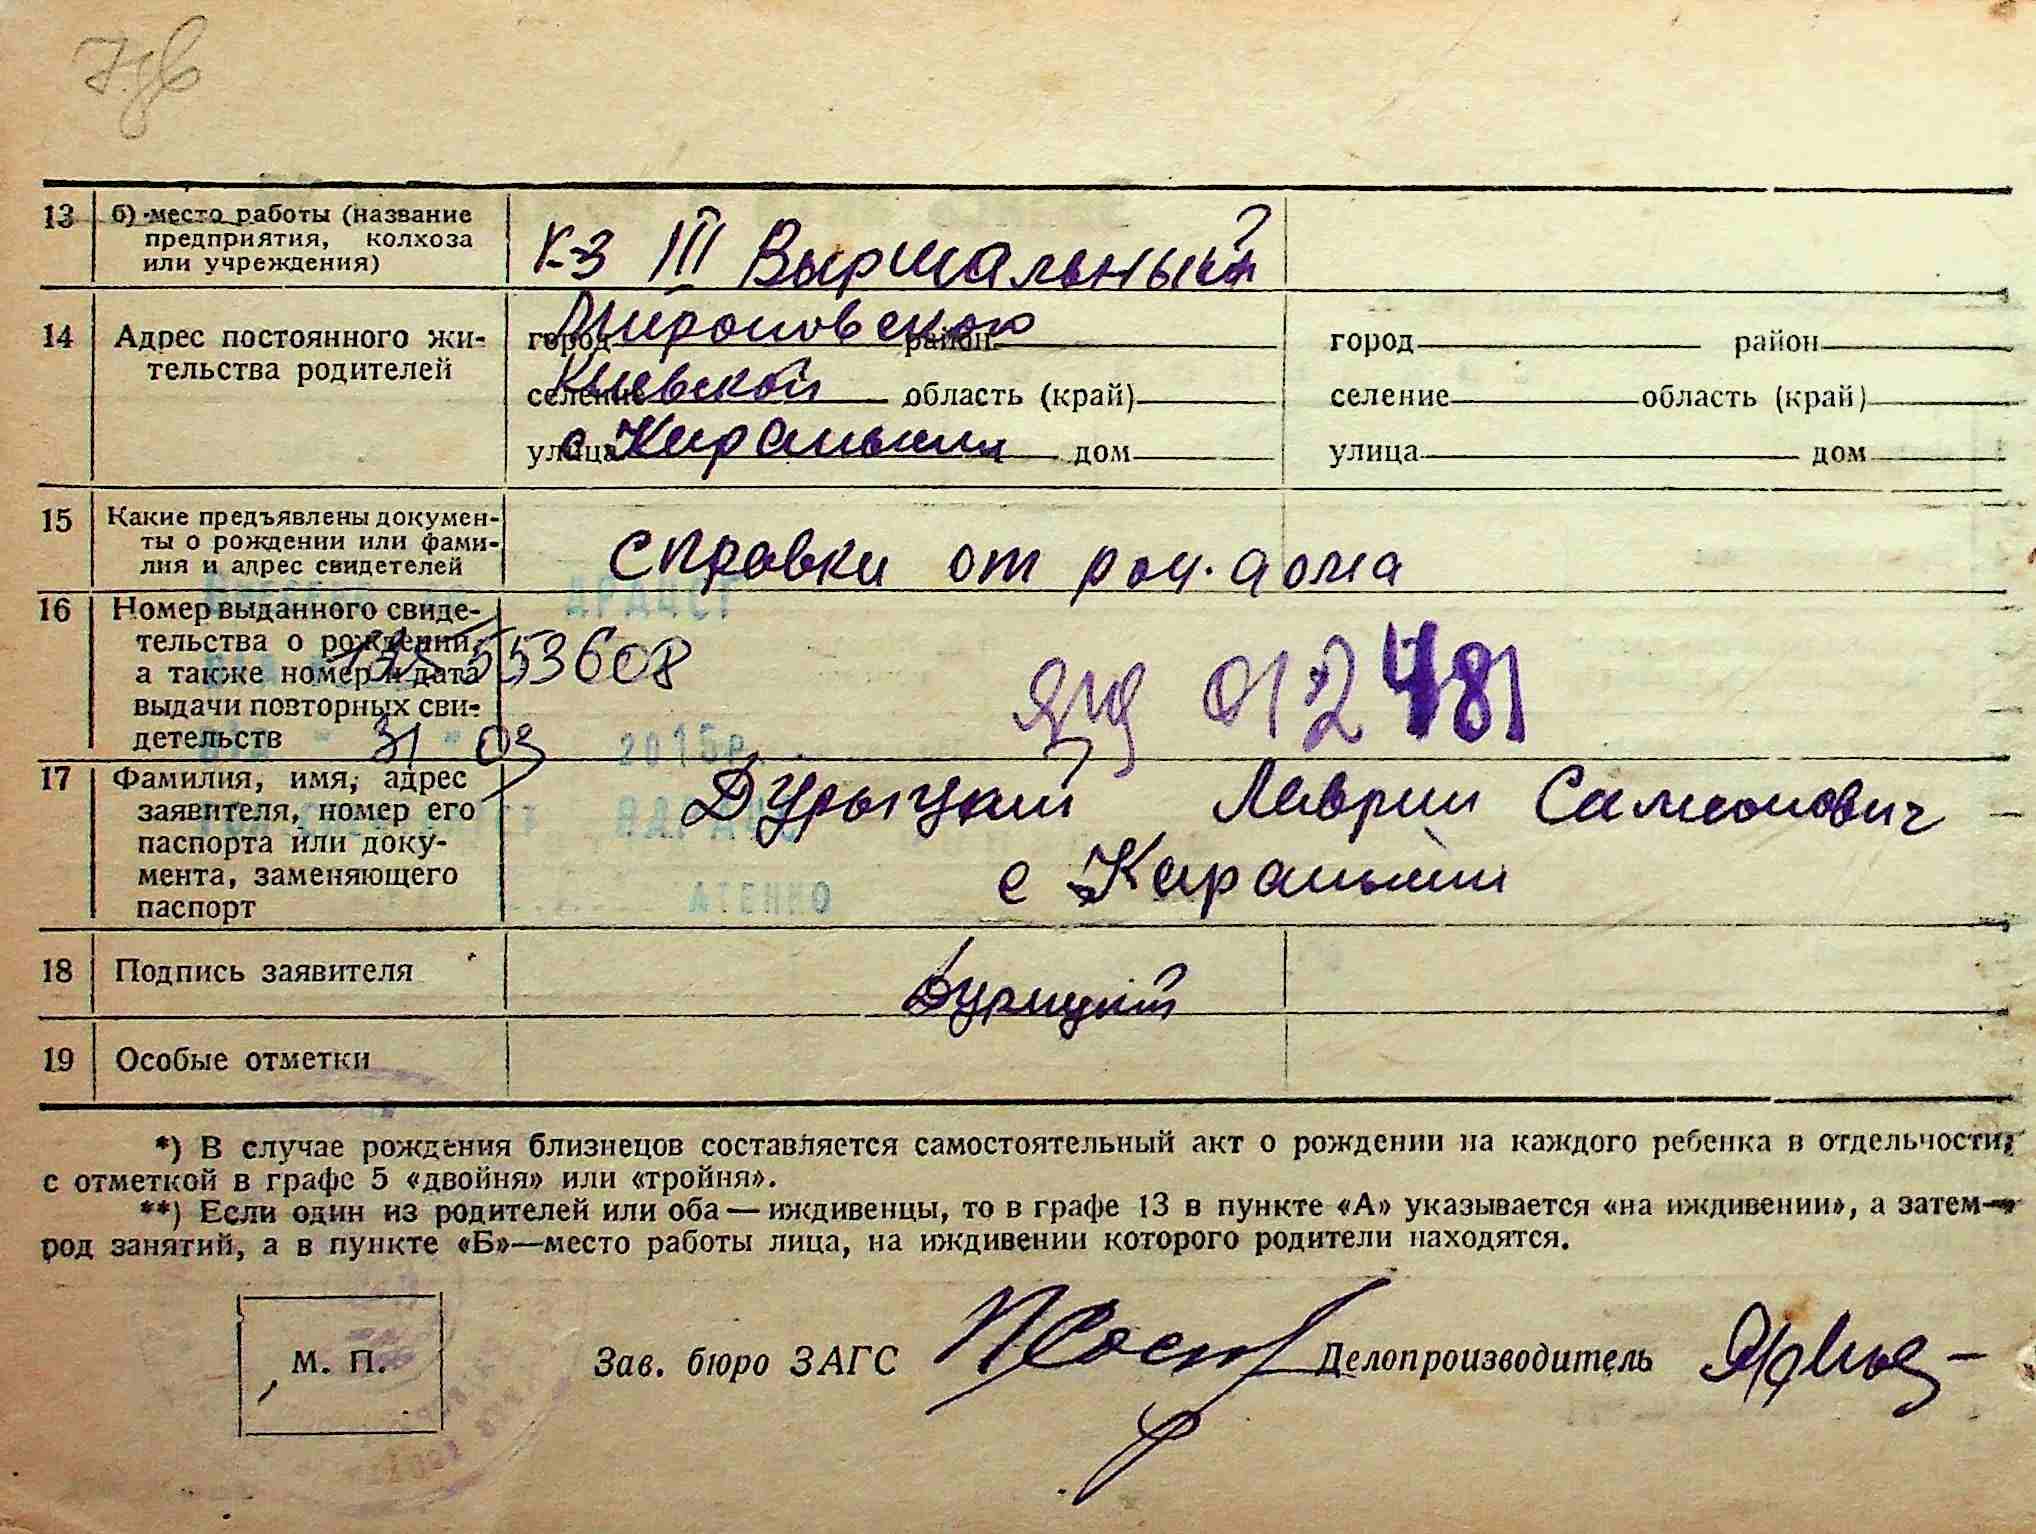 13 б) место работы (название
предприятия, колхоза
или учреждения)
к-з III Выршальный
14 Адрес постоянного жи-
тельства родителей
Мироновского
город район
Киевской
селение область (край)
с Карапыши
улица дом
город район
селение область (край)
улица дом
15 Какие предъявлены докумен-
ты о рождении или фами-
лия и адрес свидетелей
справки от род. дома
16 Номер выданного свиде-
тельства о рождении,
а также номер и дата
выдачи повторных сви-
детельств
553608
31 03 2015р.
012481
17 Фамилия, имя, адрес
заявителя, номер его
паспорта или доку-
мента, заменяющего
паспорт
Дурыцкий Лаврин Самсонович
с Карапыши
18 Подпись заявителя
Дурицкий
19 Особые отметки
*) В случае рождения близнецов составляется самостоятельный акт о рождении на каждого ребенка в отдельности,
с отметкой в графе 5 «двойня» или «тройня».
**) Если один из родителей или оба — иждивенцы, то в графе 13 в пункте «А» указывается «на иждивении», а затем—
род занятий, а в пункте «Б»—место работы лица, на иждивении которого родители находятся.
М. П.
Зав. бюро ЗАГС
Делопроизводитель